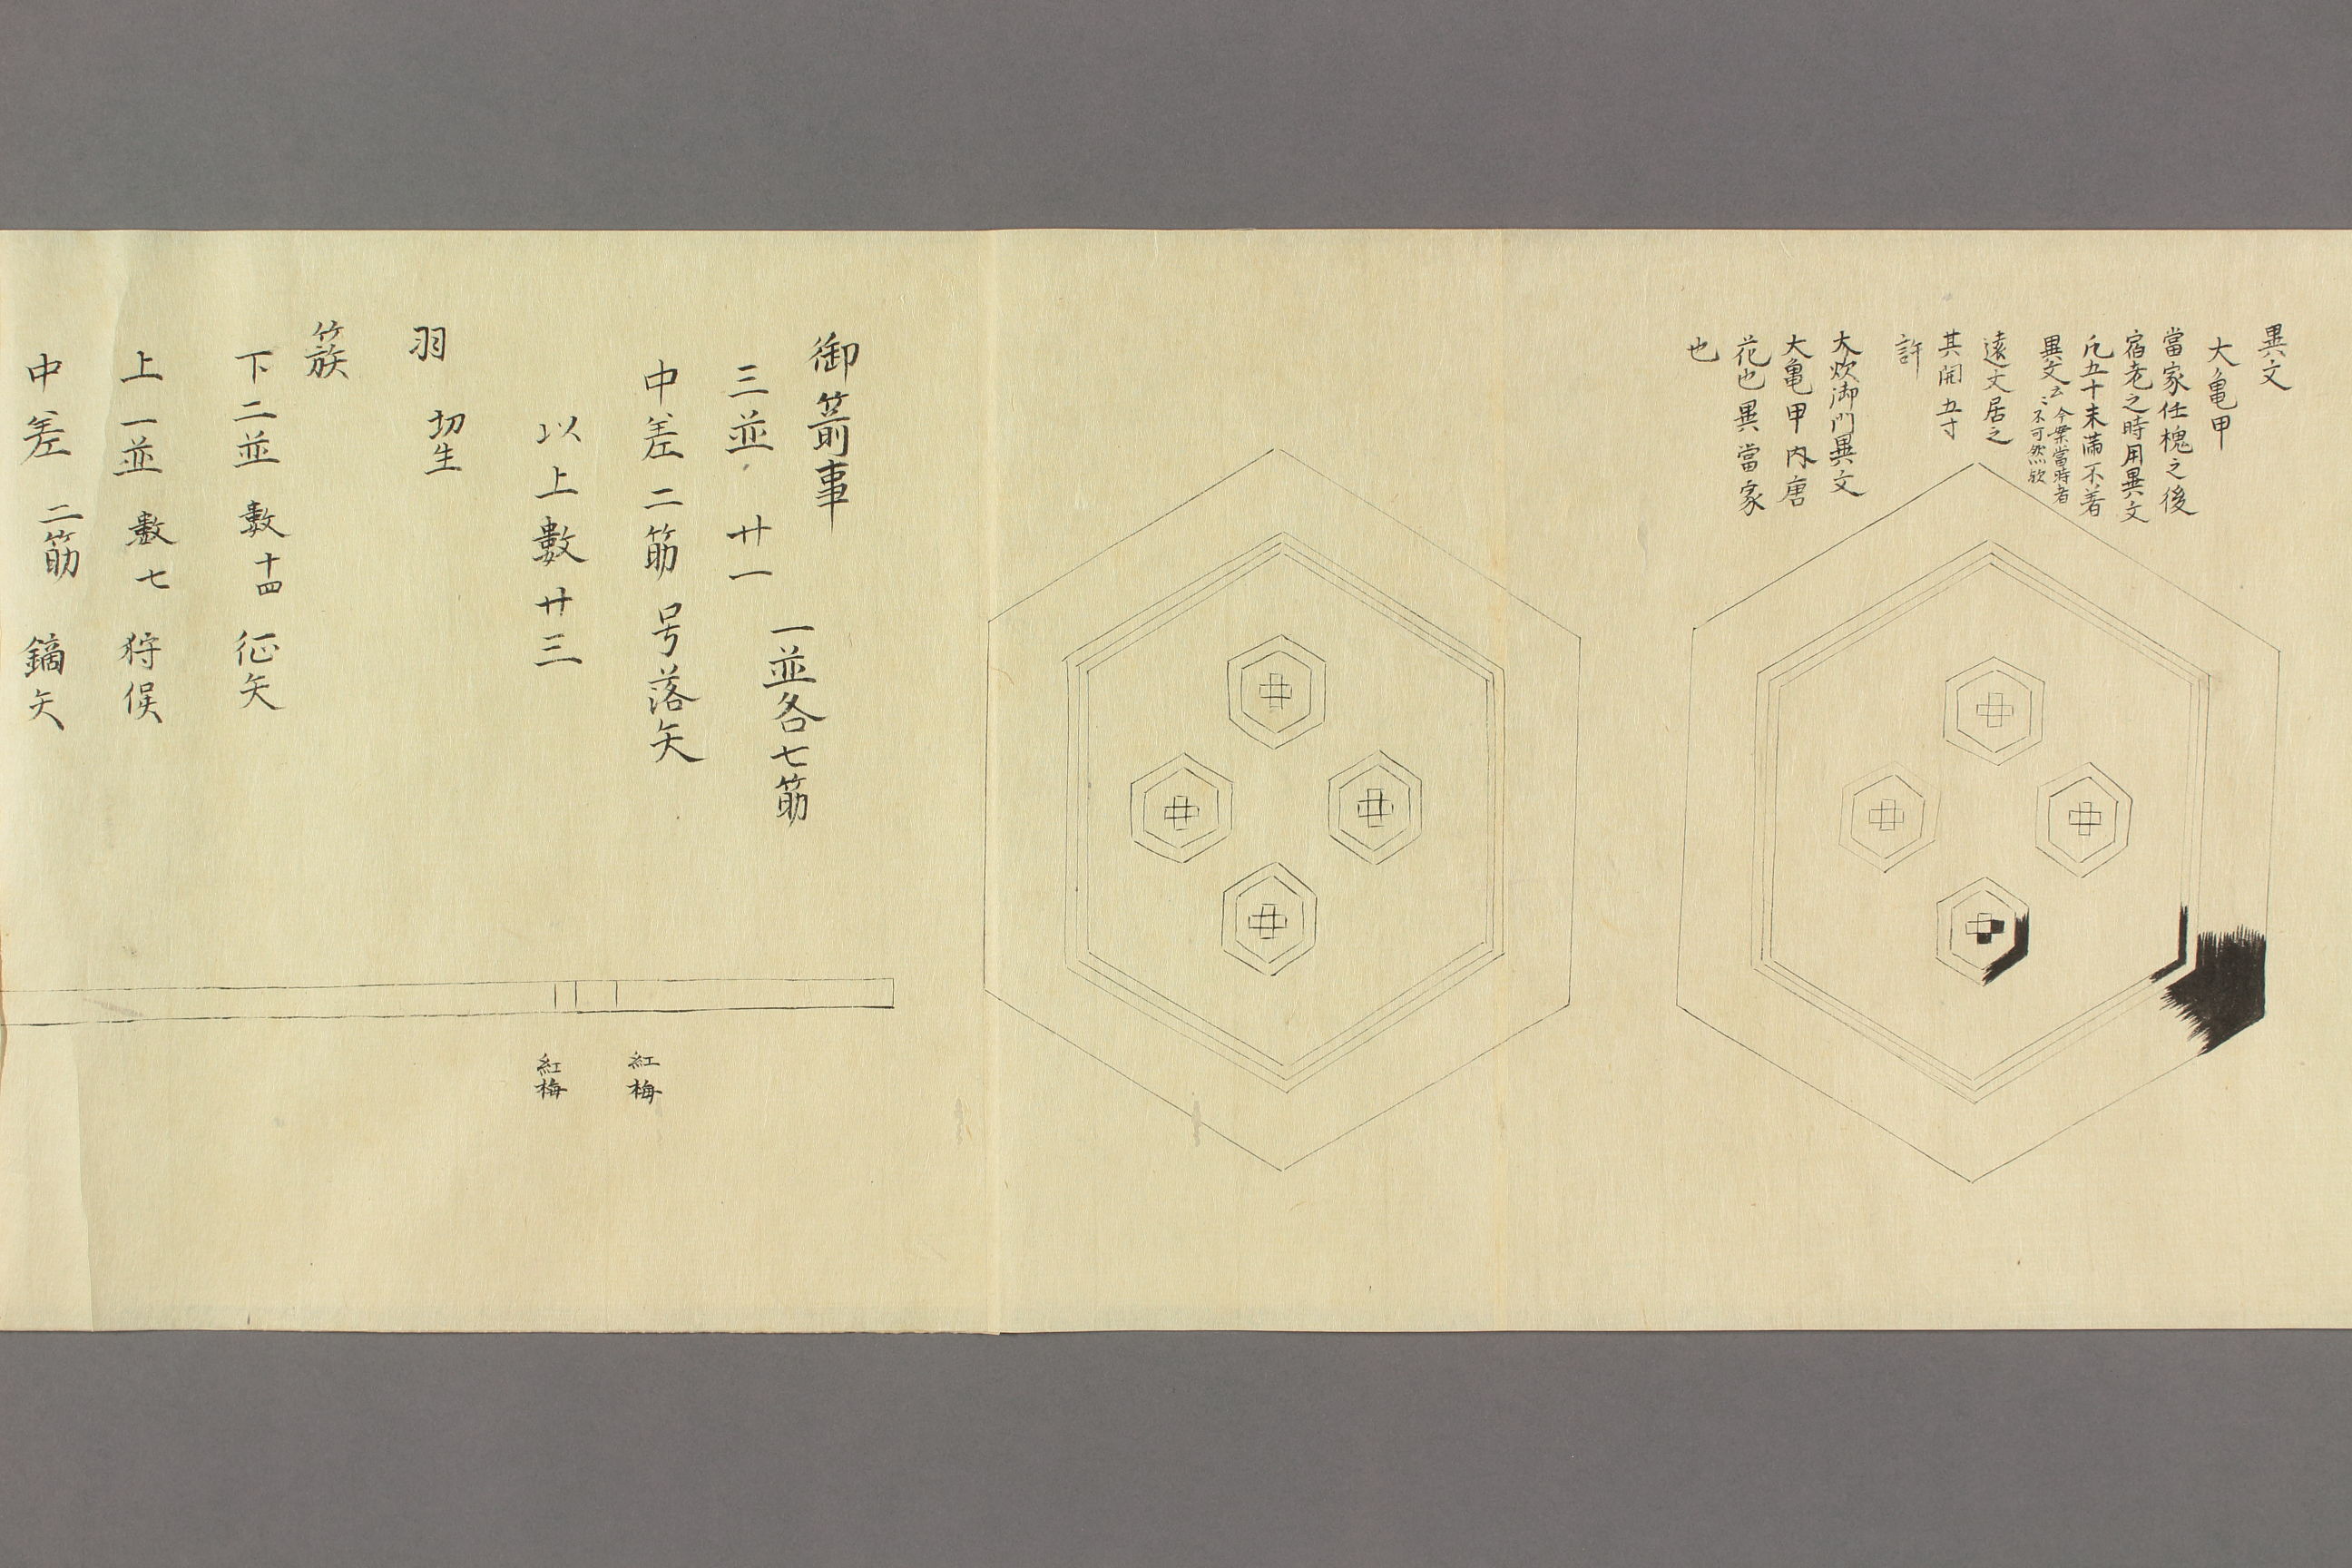 異文
大亀甲
當家任槐之後
宿老之時用異文
凡五十未満不着
異文云々今案當時者
不可然欤
遠文居之
其間五寸
許
大炊御門異文
大亀甲内唐
花也異當家
也
御箭事
三並 廿一 一並各七筋
中差二筋 号落矢
以上數廿三
羽 切生
簇
下二並 數十四 征矢
上一並 數七 狩俣
中差 二筋 鏑矢
紅梅
紅梅